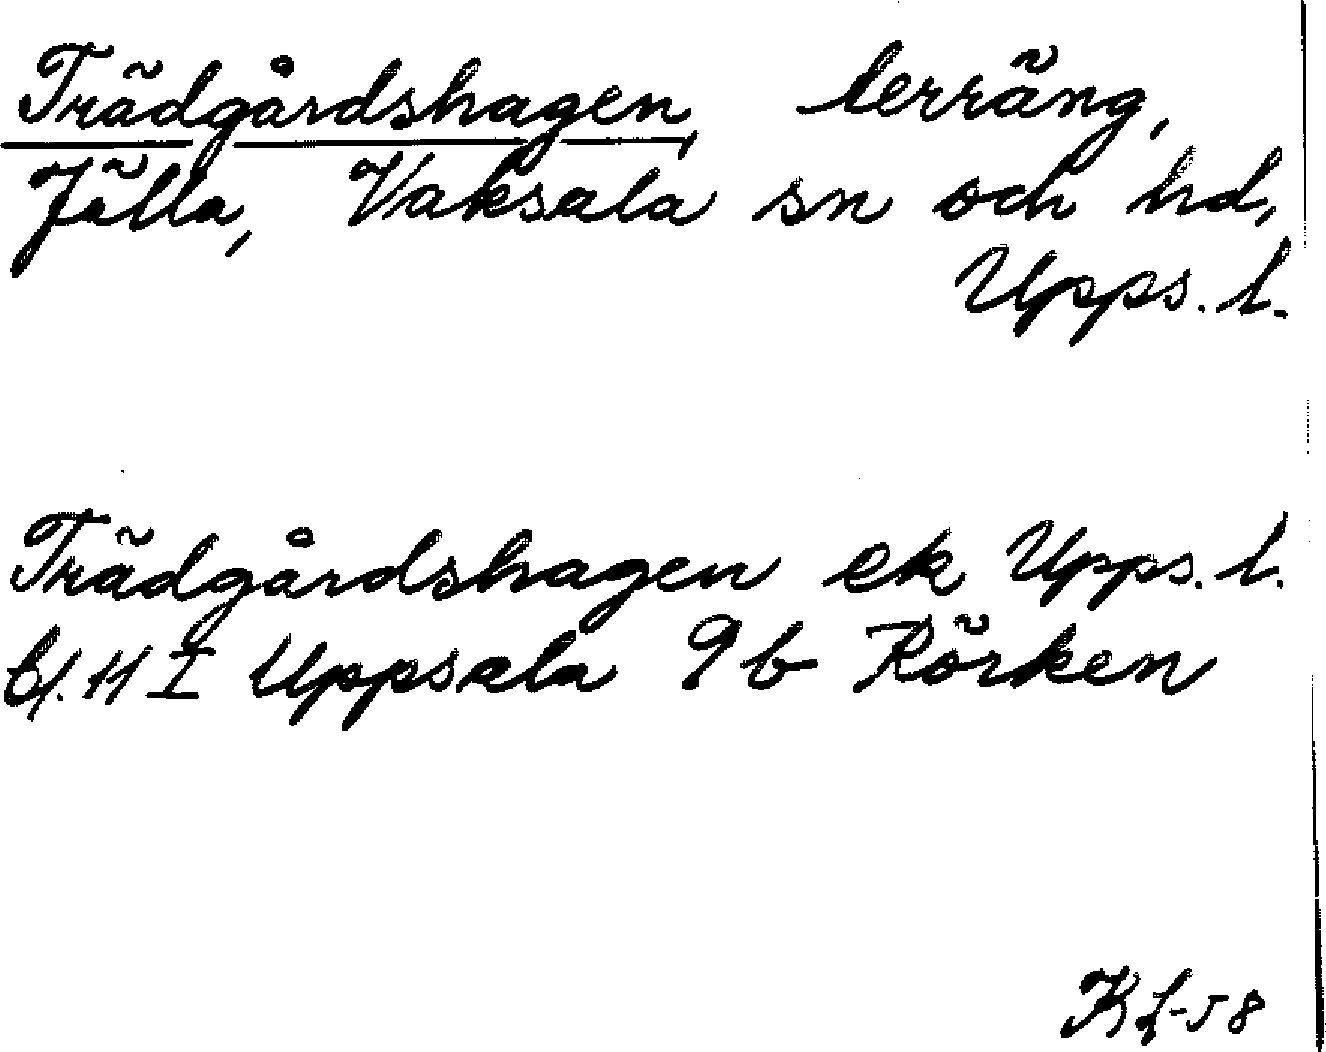 Trädgårdshagen, terräng,
Jälla, Vaksala sn och hd,
Upps. l.
Trädgårdshagen ek Upps. l.
bl. 11 I Uppsala 9 b Rörken